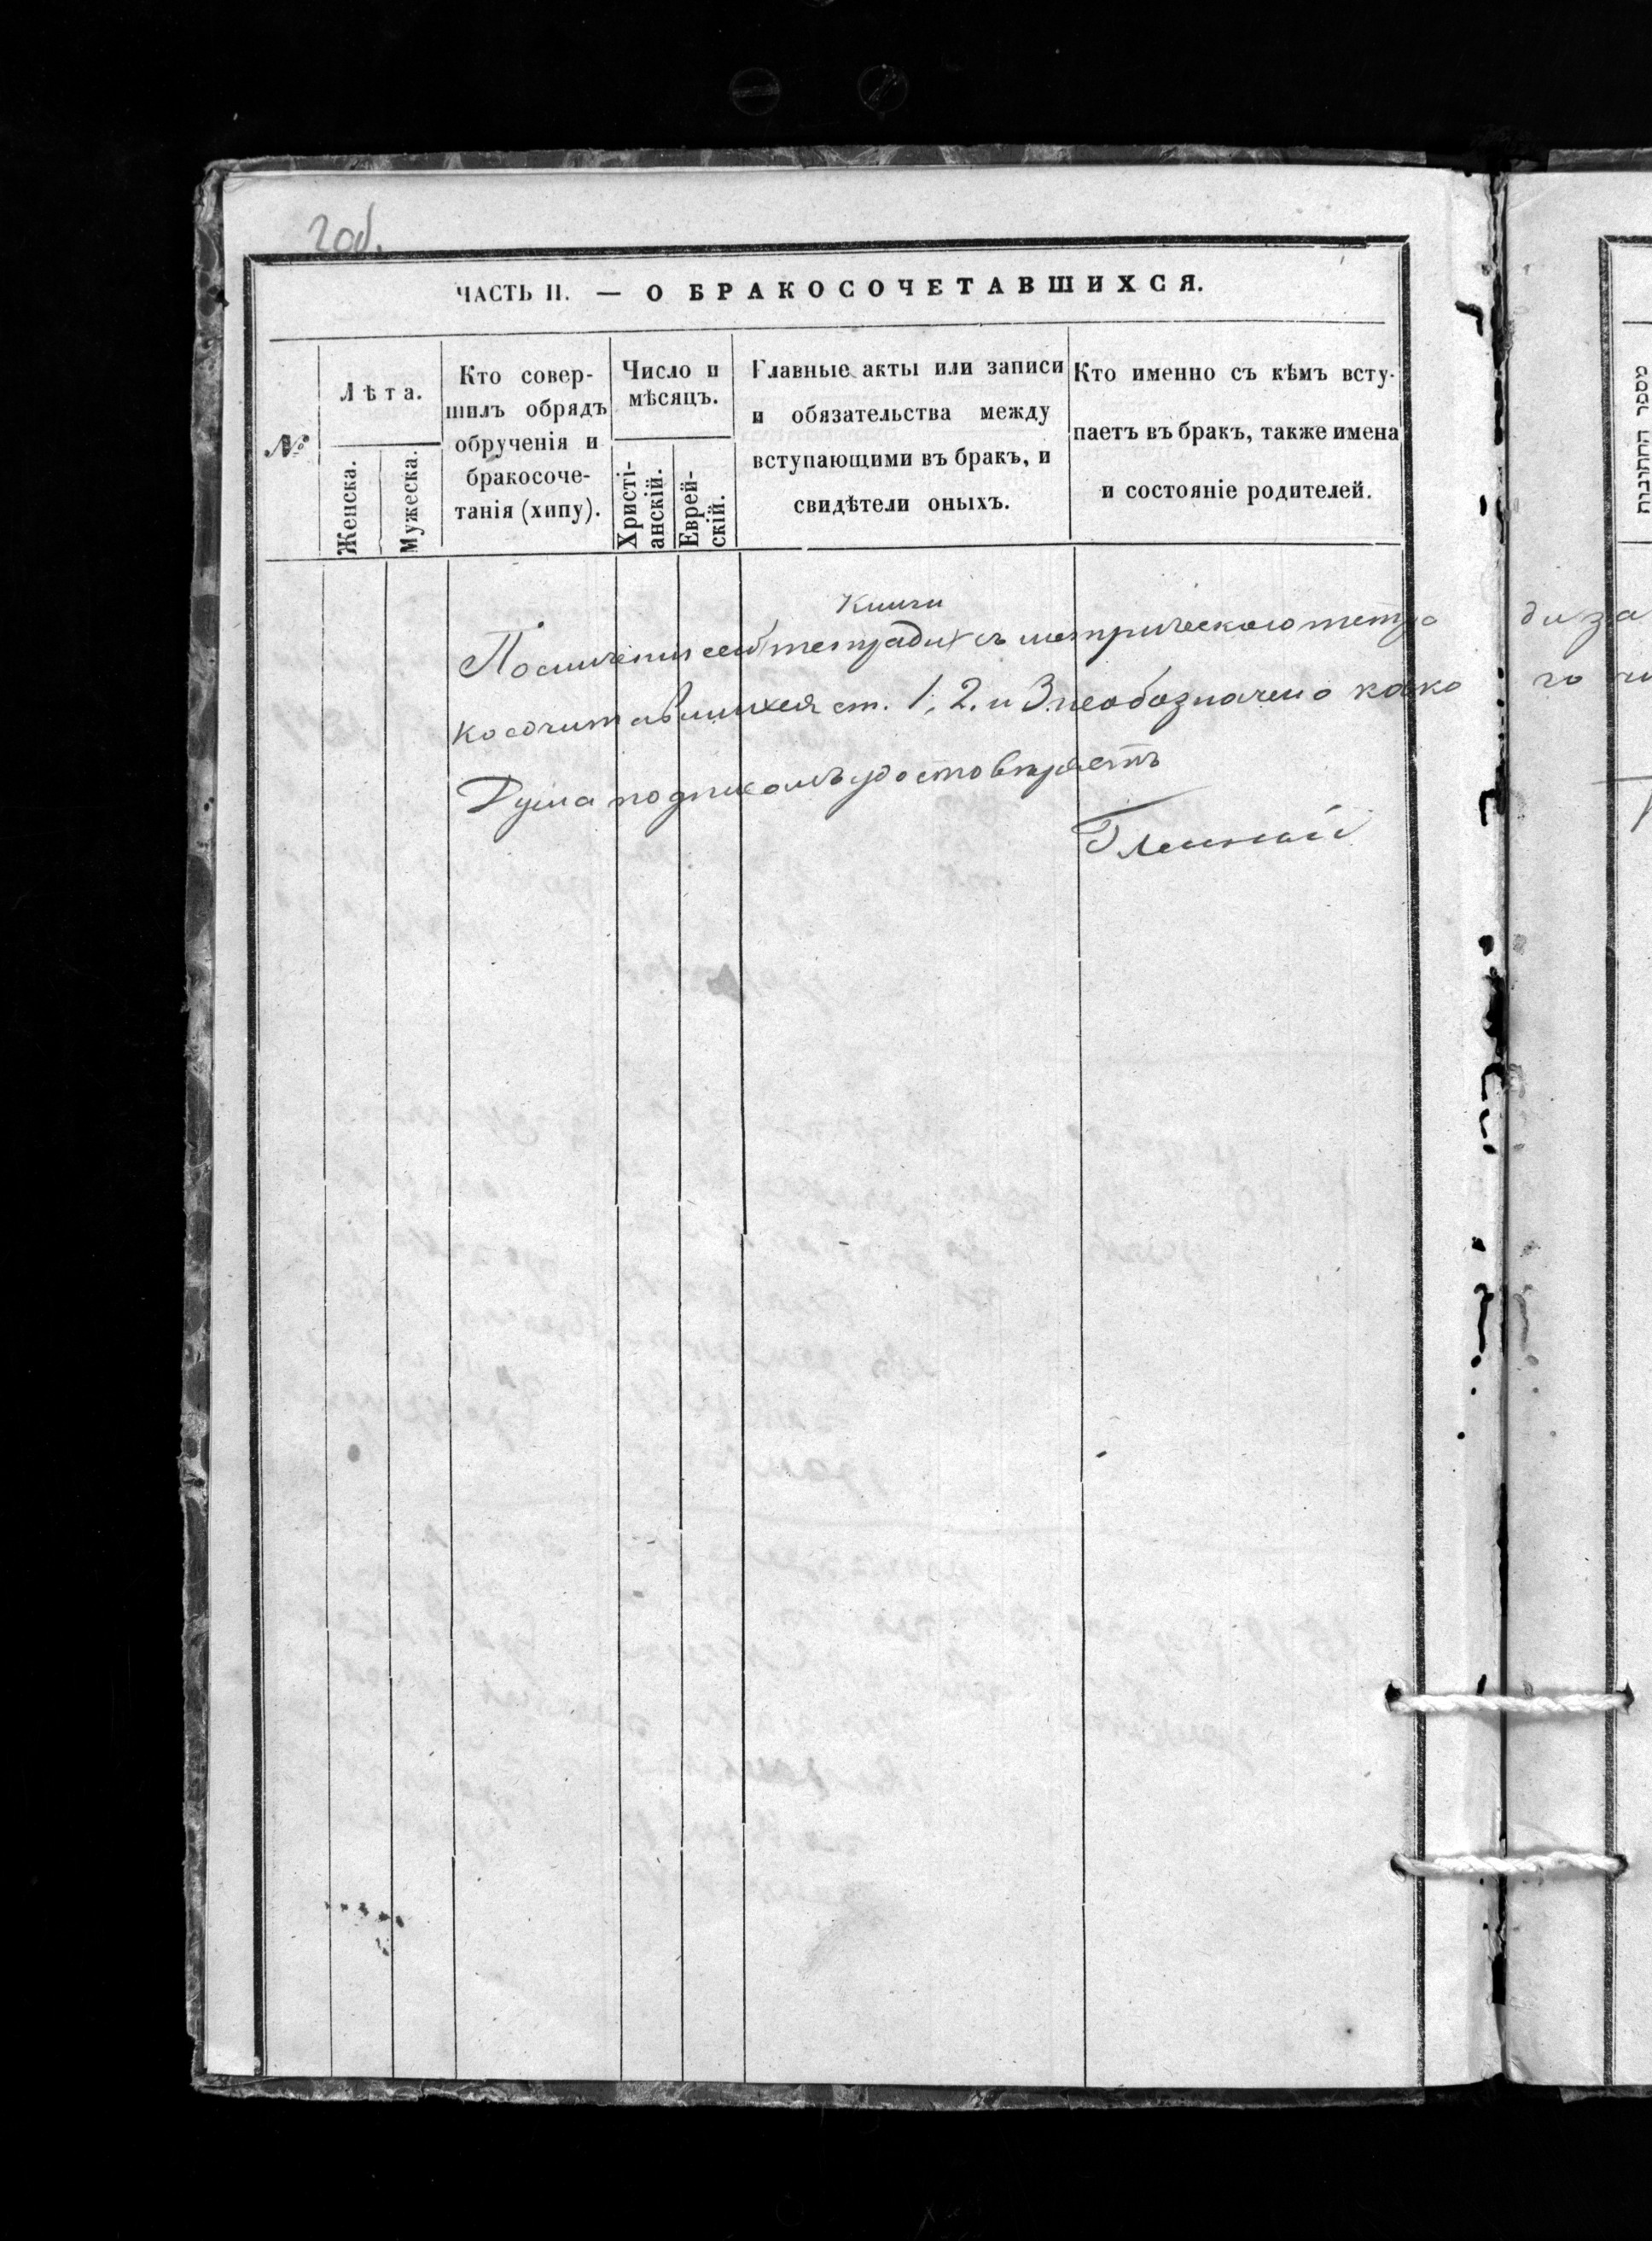 2 об.
ЧАСТЬ II. — О БРАКОСОЧЕТАВШИХСЯ.
№
Лѣта.
Женска.
Мужеска.
Кто совер-
шилъ обрядъ
обрученія и
бракосоче-
танія (хипу).
Число и
мѣсяцъ.
Христі-
анскій.
Еврей-
скій.
Главные акты или записи
и обязательства между
вступающими въ бракъ, и
свидѣтели оныхъ.
Кто именно съ кѣмъ всту-
паетъ въ бракъ, также имена
и состояніе родителей.
Книги
По сличении сей тетради съ метрическою тетра ди за
косочитавшихся ст. 1, 2. и 3 необозначено како го чи
Дума подписомъ удостовѣряетъ
Гласный
מספר החתונות